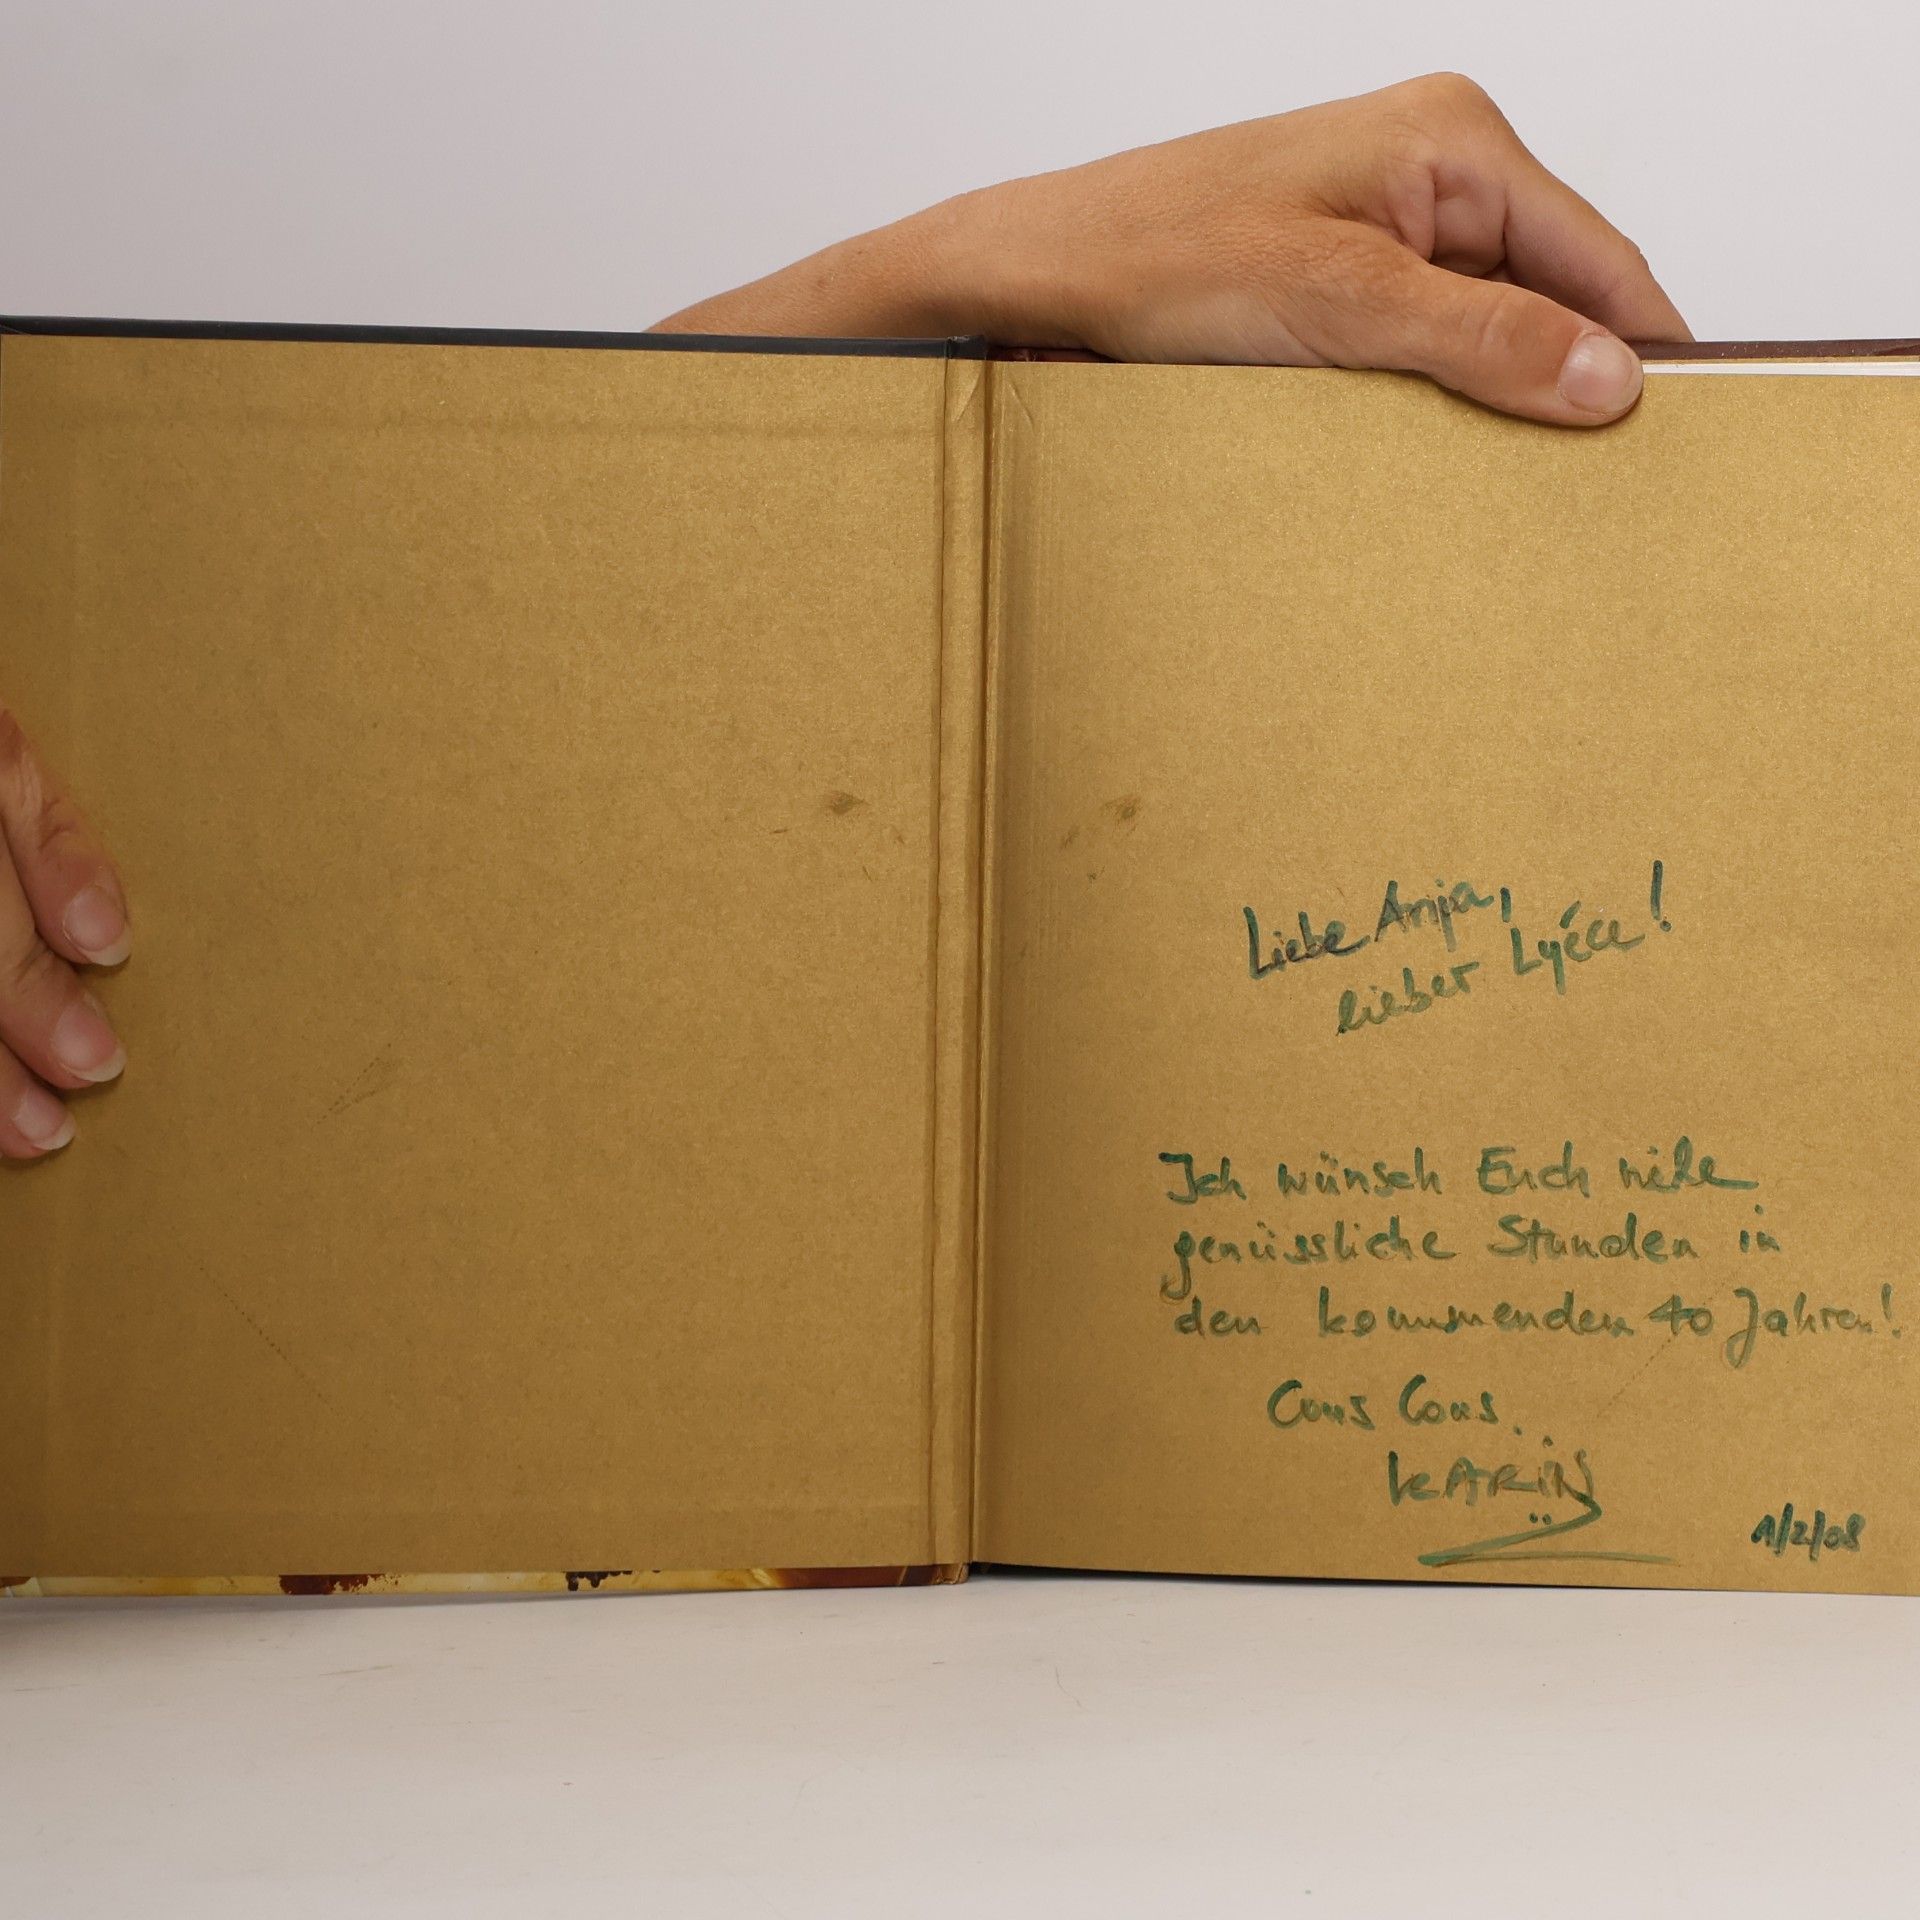 Liebe Anja,
lieber Lyéce!
Ich wünsch Euch viele
genüssliche Stunden in
den kommenden 40 Jahren!
Cous Cous.
KARIN
1/2/08